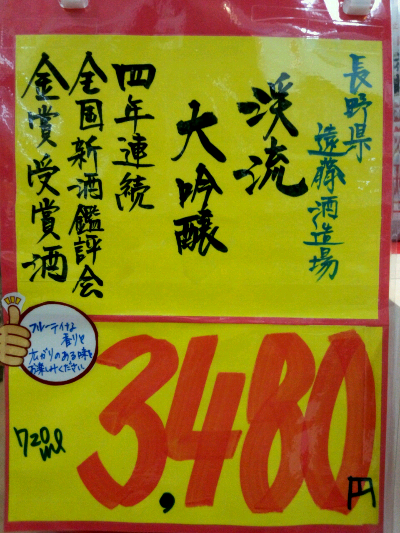 長野県
遠藤酒造場
渓流
大吟醸
四年連続
全国新酒鑑評会
金賞受賞酒
フルーティな
香りと
広がりのある味を
お楽しみください
720ml
3,480円